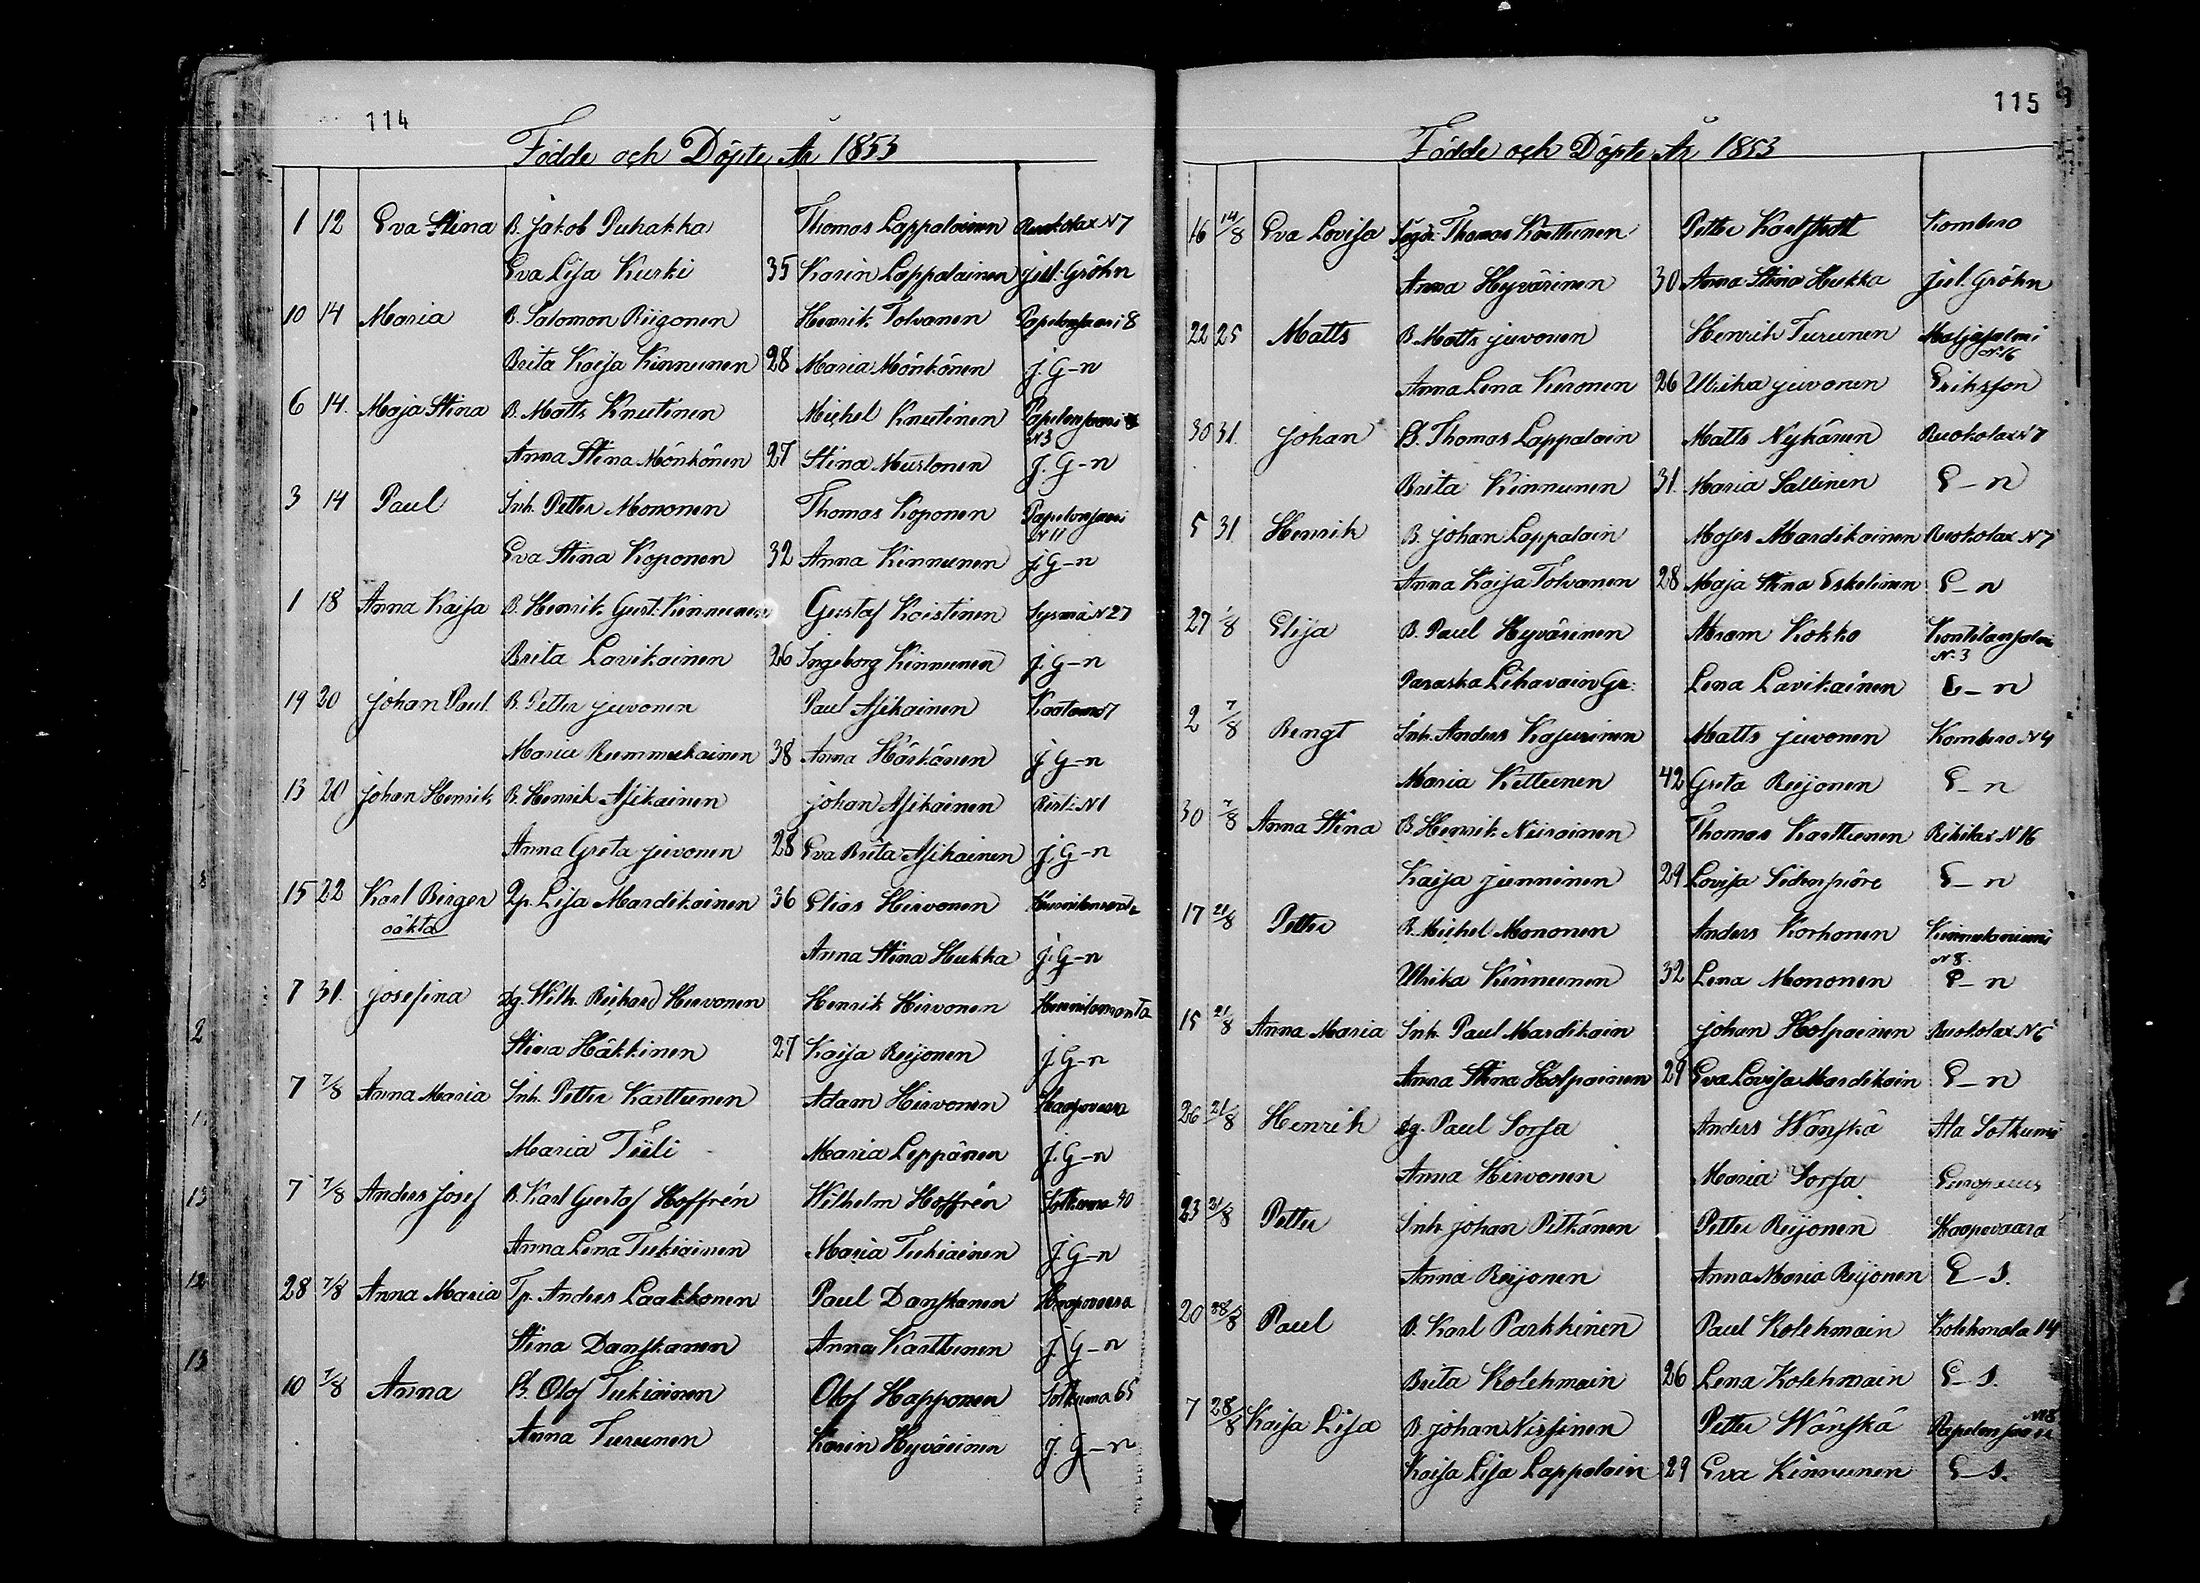 114
Födde och Döpte År 1853
1 12 Eva Stina B. Jakob Puhakka Thomas Lappalainen Ruokolax N7
Eva Lisa Kurki 35 Karin Lappalainen Jul. Gröhn
10 14 Maria B. Salomon Riigonen Henrik Tolvanen Papelonsaari 8
Brita Kaisa Kinnunen 28 Maria Mönkönen J. G-n
6 14. Maja Stina B. Matts Knutinen Michel Knutinen Papelonsaari
N3
Anna Stina Mönkönen 27 Stina Mustonen J. G-n
3 14 Paul Inh. Petter Mononen Thomas Koponen Papelonsaari
N 11
Eva Stina Koponen 32 Anna Kinnunen J. G-n
1 18 Anna Kaisa B. Henrik Gust. Kinnunen Gustaf Koistinen Sysmä N27
Brita Lavikainen 26 Ingeborg Kinnunen J. G-n
19 20 Johan Paul B. Petter Juvonen Paul Asikainen
Maria Rummukainen 38 Anna Härkönen J. G-n
13 20 Johan Henrik B. Henrik Asikainen Johan Asikainen Risti N1
Anna Greta Juvonen 28 Eva Brita Asikainen J. G-n
15 22 Karl Birger Qp. Lisa Mardikainen 36 Elias Hirvonen
oäkta
Anna Stina Hukka J. G-n
7 31. Josefina dg. Wilh. Richard Hirvonen Henrik Hirvonen
Stina Häkkinen 27 Kaisa Reijonen J. G-n
7 7/8 Anna Maria Inh. Petter Karttunen Adam Hirvonen Haapovaara
Maria Tiili Maria Leppänen J. G-n
7 7/8 Anders Josef B. Karl Gustaf Hoffrén Wilhelm Hoffrén Sotkuma 40
Anna Lena Tukiainen Maria Tukiainen J. G-n
28 7/8 Anna Maria Tp. Anders Laakkonen Paul Danskanen Haapovaara
Stina Danskanen Anna Karttunen J. G-n
10 7/8 Anna B. Olof Tukiainen Olof Happonen Sotkuma 65
Anna Turunen Karin Hyvärinen J. G-n
115
Födde och Döpte År 1853
16 14/8 Eva Lovisa Thomas Karttunen Petter Kombero
Anna Hyvärinen 30 Anna Stina Hukka Jul. Gröhn
22 25 Matts B. Matts Juvonen Henrik Turunen Maljasalmi
N:16
Anna Lena Kuronen 26 Ulrika Juvonen Eriksson
30 31. Johan B. Thomas Lappalain Matts Nykänen Ruokolax N7
Brita Kinnunen 31. Maria Sallinen E-n
5 31 Henrik B. Johan Lappalain Moses Mardikainen Ruokolax N7
Anna Kaisa Tolvanen 28 Maja Stina Eskelinen E-n
27 1/8 Elisa B. Paul Hyvärinen Abram Kokko Kontilansalmi
N. 3
Paraska Lihavain Gr. Lena Lavikainen E-n
2 7/8 Bengt Inh. Anders Kajurinen Matts Juvonen Kombero N4
Maria Kettunen 42 Greta Reijonen E-n
30 7/8 Anna Stina B. Henrik Niiranen Thomas Karttunen Riihilax N16
Kaisa Junninen 29 Lovisa E-n
17 21/8 Petter B. Michel Mononen Anders Korhonen Kinnalaniemi
N 8.
Ulrika Kinnunen 32 Lena Mononen E-n
15 21/8 Anna Maria Inh. Paul Mardikain Johan Holpainen Ruokolax N6
Anna Stina Holpainen 29 Eva Lovisa Mardikain E-n
26 21/8 Henrik dg. Paul Sorsa Anders Wänskä Ala Sotkuma
Anna Hirvonen Maria Sorsa Europaeus
23 21/8 Petter Inh. Johan Pitkänen Petter Reijonen Haapovaara
Anna Reijonen Anna Maria Reijonen E-s.
20 28/8 Paul B. Karl Parkkinen Paul Kolehmain Kolehmala 14
Brita Kolehmain 26 Lena Kolehmain E-s.
7 28/8 Kaisa Lisa B. Johan Nissinen Petter Wänskä Papelonsaari N8
Kaisa Lisa Lappalain 29 Eva Kinnunen E-s.